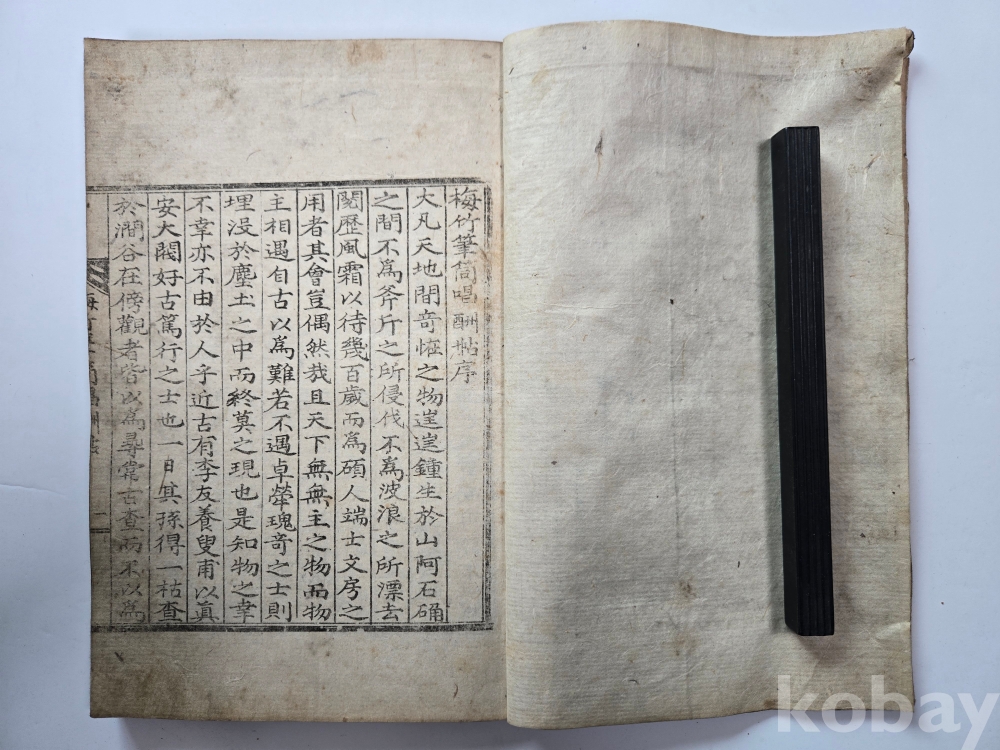 梅竹筆筒唱酬帖序
大凡天地間奇恠之物迬迬鍾生於山阿石磵
之間不爲斧斤之所侵伐不爲波浪之所漂去
閱歷風霜以待幾百歲而爲碩人端士文房之
用者其會豈偶然哉且天下無無主之物而物
主相遇自古以爲難若不遇卓犖瑰奇之士則
埋没於塵土之中而終莫之現也是知物之幸
不幸亦不由於人乎近古有李友養叟甫以眞
安大閥好古篤行之士也一日其孫得一枯查
於澗谷在傍觀者皆以爲尋常古查而不以爲
kobay